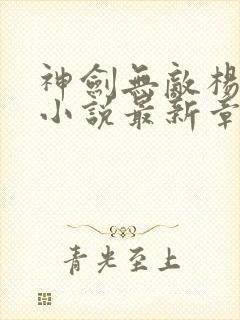 神劍無敵楊
小說最新章
青光至上